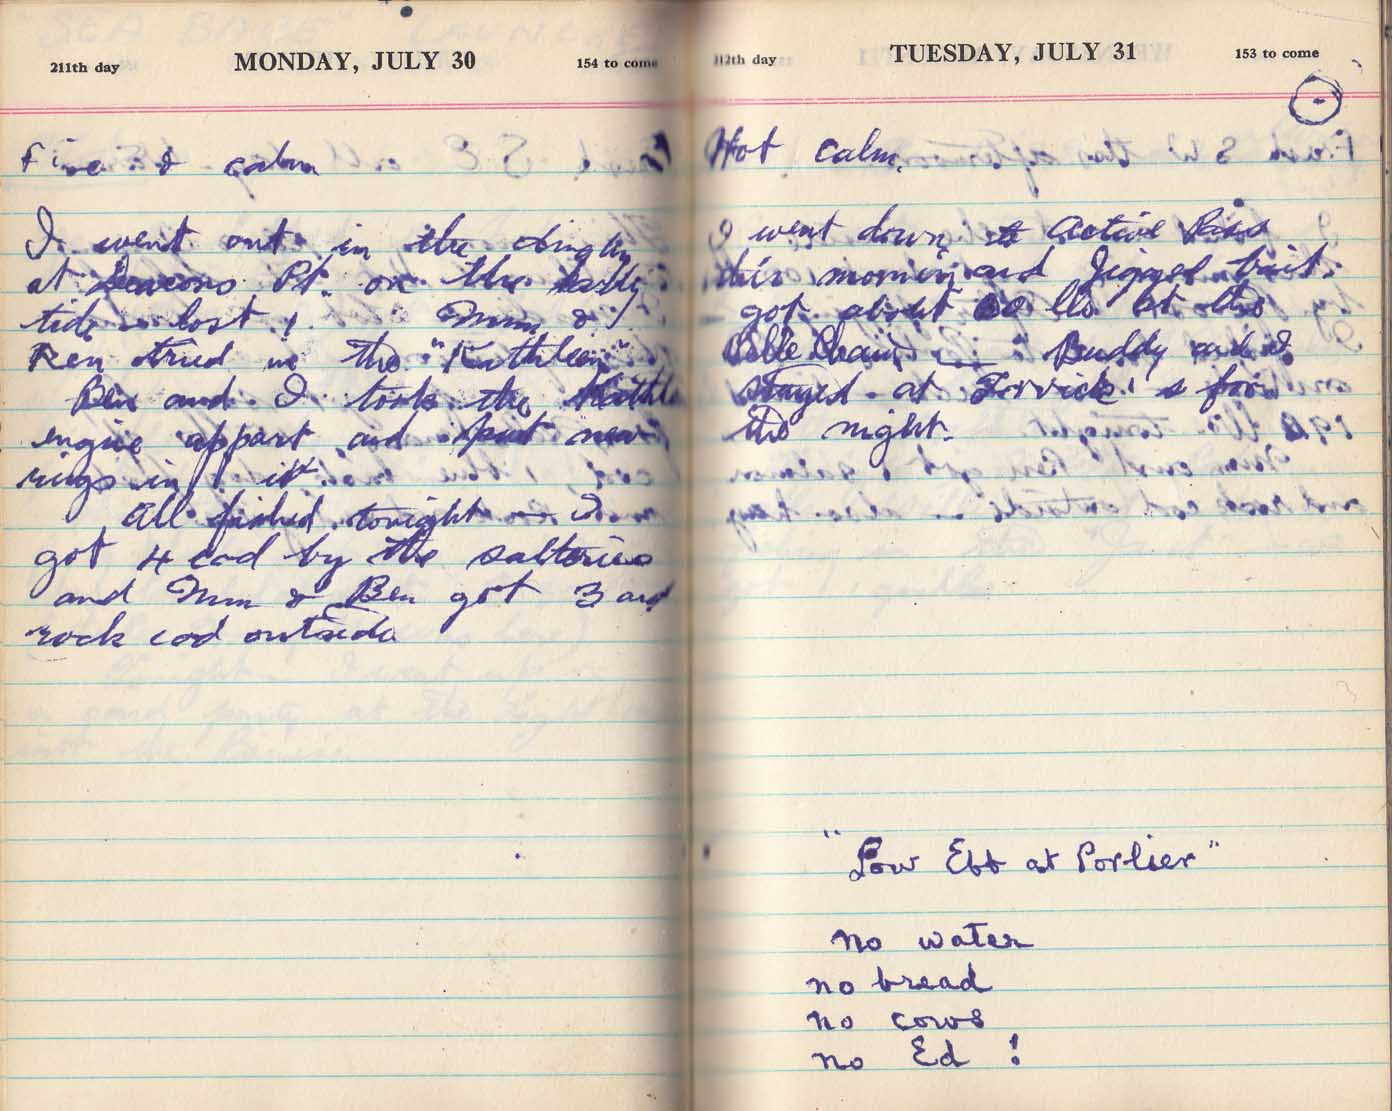 211th day MONDAY, JULY 30 154 to come
Fine & calm
I went out in the dinghy
at Pt. on the
tide lost 1. Mum &
Ben tried in the "Kathleen"
Ben and I took the
engine appart and put new
rings in it
All fished tonight I
got 4 cod by the salteries
and Mum & Ben got 3 and
rock cod outside
212th day TUESDAY, JULY 31 153 to come
Hot calm.
I went down to Active Pass
this morning and Jigged bait.
got about lbs at the
Buddy and I
stayed at for
the night.
"Low Ebb at Porlier"
no water
no bread
no cows
no Ed !